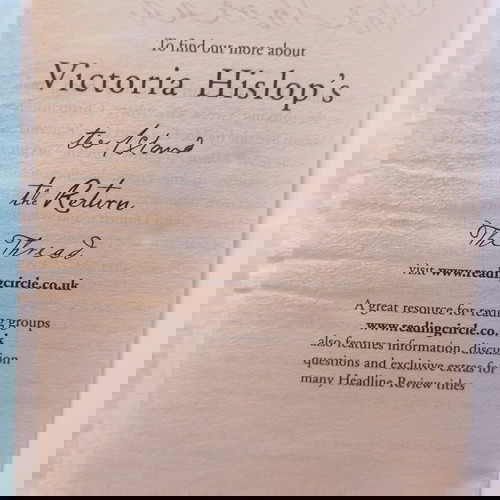 To find out more about
Victoria Hislop's
the Island
the Return
The Thread
visit www.readingcircle.co.uk
A great resource for reading
groups
www.eadingcircle.co.
k
also features information, discus
ion
questions and exclusive extras for
many Headline Review titles